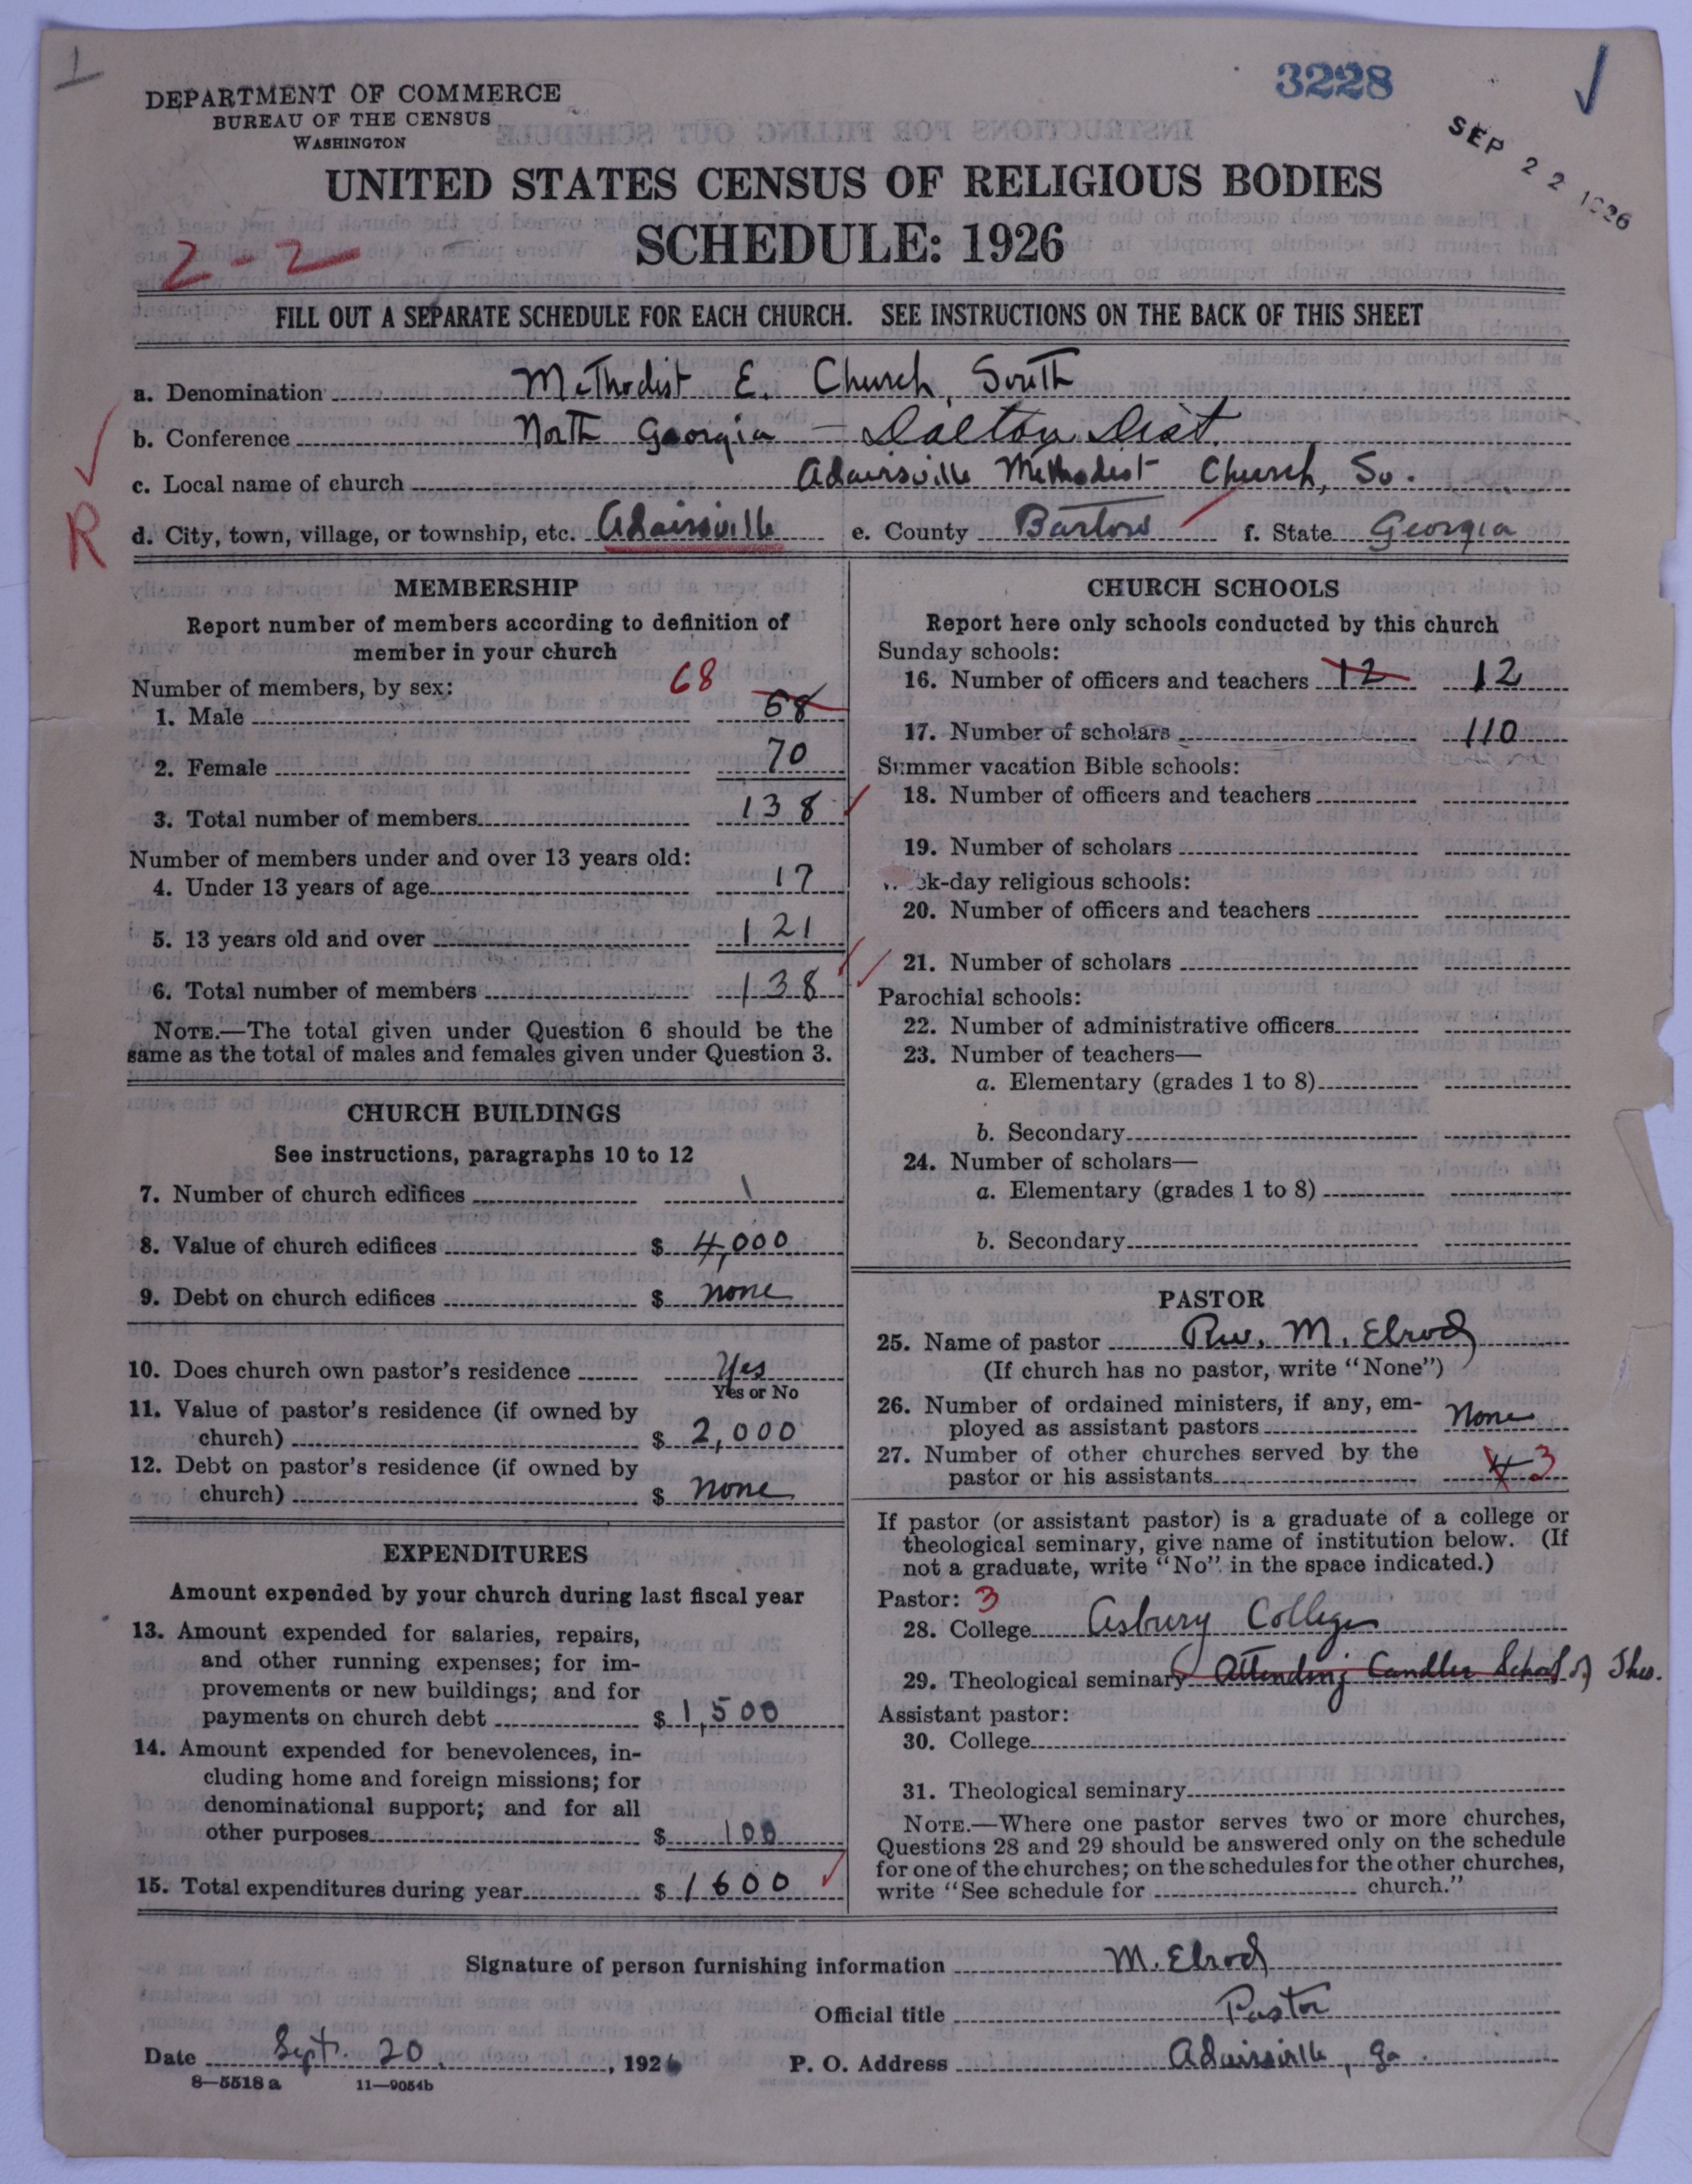 1
3228
SEP 22 1926
DEPARTMENT OF COMMERCE
BUREAU OF THE CENSUS
WASHINGTON
UNITED STATES CENSUS OF RELIGIOUS BODIES
SCHEDULE: 1926
2-2
FILL OUT A SEPARATE SCHEDULE FOR EACH CHURCH. SEE INSTRUCTIONS ON THE BACK OF THIS SHEET
a. Denomination Methodist E. Church, South
b. Conference North Georgia - Dalton Dist.
c. Local name of church Adairsville Methodist Church, So.
R
d. City, town, village, or township, etc. Adairsville e. County Bartow f. State Georgia
MEMBERSHIP
Report number of members according to definition of
member in your church
Number of members, by sex: 68
1. Male 58
2. Female 70
3. Total number of members 138
Number of members under and over 13 years old:
4. Under 13 years of age 17
5. 13 years old and over 121
6. Total number of members 138
NOTE.—The total given under Question 6 should be the
same as the total of males and females given under Question 3.
CHURCH BUILDINGS
See instructions, paragraphs 10 to 12
7. Number of church edifices 1
8. Value of church edifices $ 4,000
9. Debt on church edifices $ none
10. Does church own pastor's residence Yes
Yes or No
11. Value of pastor's residence (if owned by
church) $ 2,000
12. Debt on pastor's residence (if owned by
church) $ none
EXPENDITURES
Amount expended by your church during last fiscal year
13. Amount expended for salaries, repairs,
and other running expenses; for im-
provements or new buildings; and for
payments on church debt $ 1,500
14. Amount expended for benevolences, in-
cluding home and foreign missions; for
denominational support; and for all
other purposes $ 100
15. Total expenditures during year $ 1600
CHURCH SCHOOLS
Report here only schools conducted by this church
Sunday schools:
16. Number of officers and teachers 12 12
17. Number of scholars 110
Summer vacation Bible schools:
18. Number of officers and teachers
19. Number of scholars
ek-day religious schools:
20. Number of officers and teachers
21. Number of scholars
Parochial schools:
22. Number of administrative officers
23. Number of teachers—
a. Elementary (grades 1 to 8)
b. Secondary
24. Number of scholars—
a. Elementary (grades 1 to 8)
b. Secondary
PASTOR
25. Name of pastor Rev. M. Elrod
(If church has no pastor, write "None")
26. Number of ordained ministers, if any, em-
ployed as assistant pastors None
27. Number of other churches served by the
pastor or his assistants 4 3
If pastor (or assistant pastor) is a graduate of a college or
theological seminary, give name of institution below. (If
not a graduate, write "No" in the space indicated.)
Pastor: 3
28. College Asbury College
29. Theological seminary Attending Candler School of Theo.
Assistant pastor:
30. College
31. Theological seminary
NOTE.—Where one pastor serves two or more churches,
Questions 28 and 29 should be answered only on the schedule
for one of the churches; on the schedules for the other churches,
write "See schedule for church."
Signature of person furnishing information M. Elrod
Official title Pastor
Date Sept. 20, 1926 P. O. Address Adairsville, Ga.
8—5518 a 11—9054b